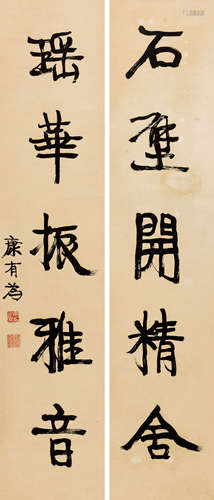 石壁開精舍
瑤華振雅音
康有為